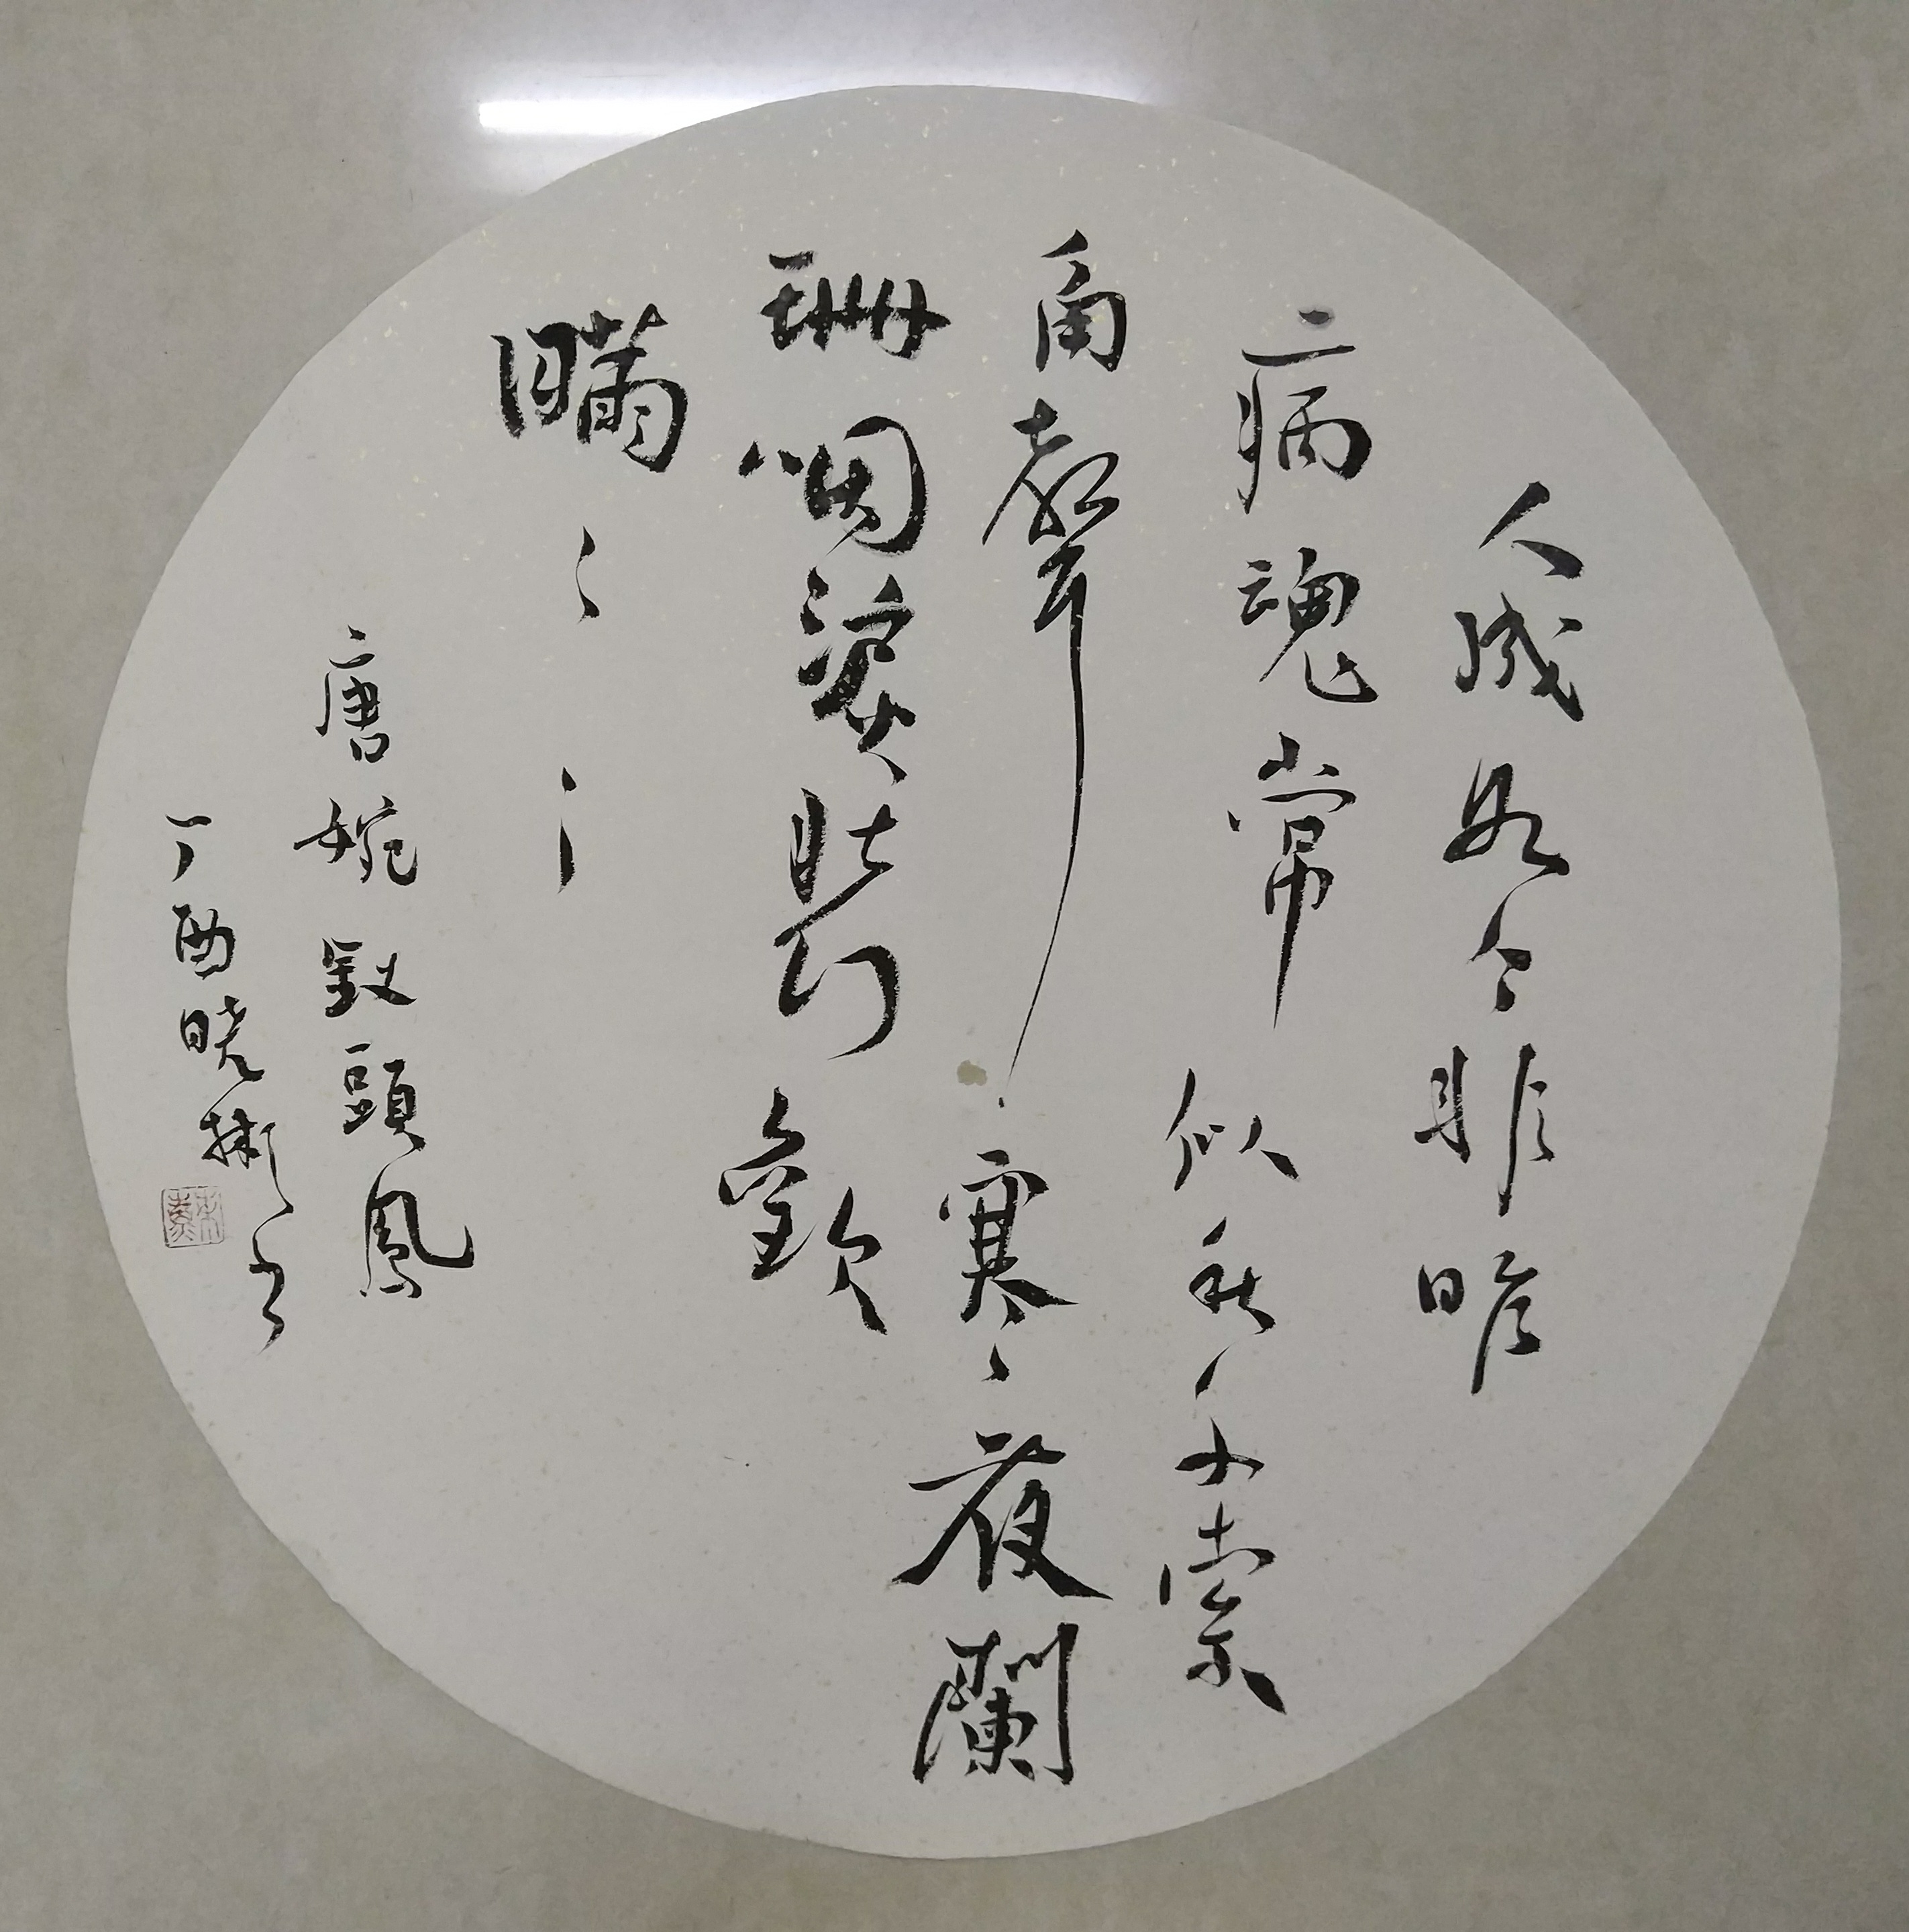 人成各今非昨
病魂常似秋千索
角聲寒夜闌
珊咽淚裝歡
瞞々々
唐婉釵頭鳳
丁酉曉彬書